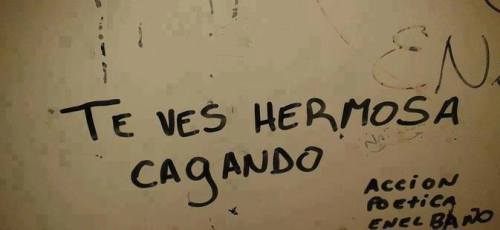 EN
TE VES HERMOSA
CAGANDO
ACCION
POETICA
EN EL BAÑO